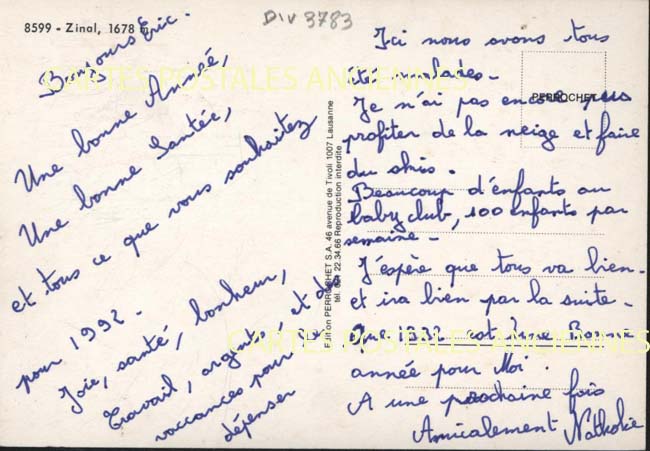 8599 - Zinal, 1678 m
DIV 3783
Bonjours Eric.
Une bonne Année,
Une bonne Santée,
et tous ce que vous souhaitez
pour 1992.
Joie, santé, bonheur,
travail, argent, et des
vaccances pour le
dépenser
F. Jil'on PERROCHET S.A. 46 avenue de Tivoli 1007 Lausanne
tél. 021 22.34.66 Reproduction interdite
PERROCHET
Ici nous avons tous
été malades.
Je n'ai pas encore pus
profiter de la neige et faire
du skis.
Beaucoup d'enfants au
baby club, 100 enfants par
semaine.
J'espère que tous va bien.
et ira bien par la suite.
Que 1992 soit une Bonne
année pour Moi.
A une prochaine fois
Amicalement Nathalie
CARTES POSTALES ANCIENNES
CARTES POSTALES ANCIENNES